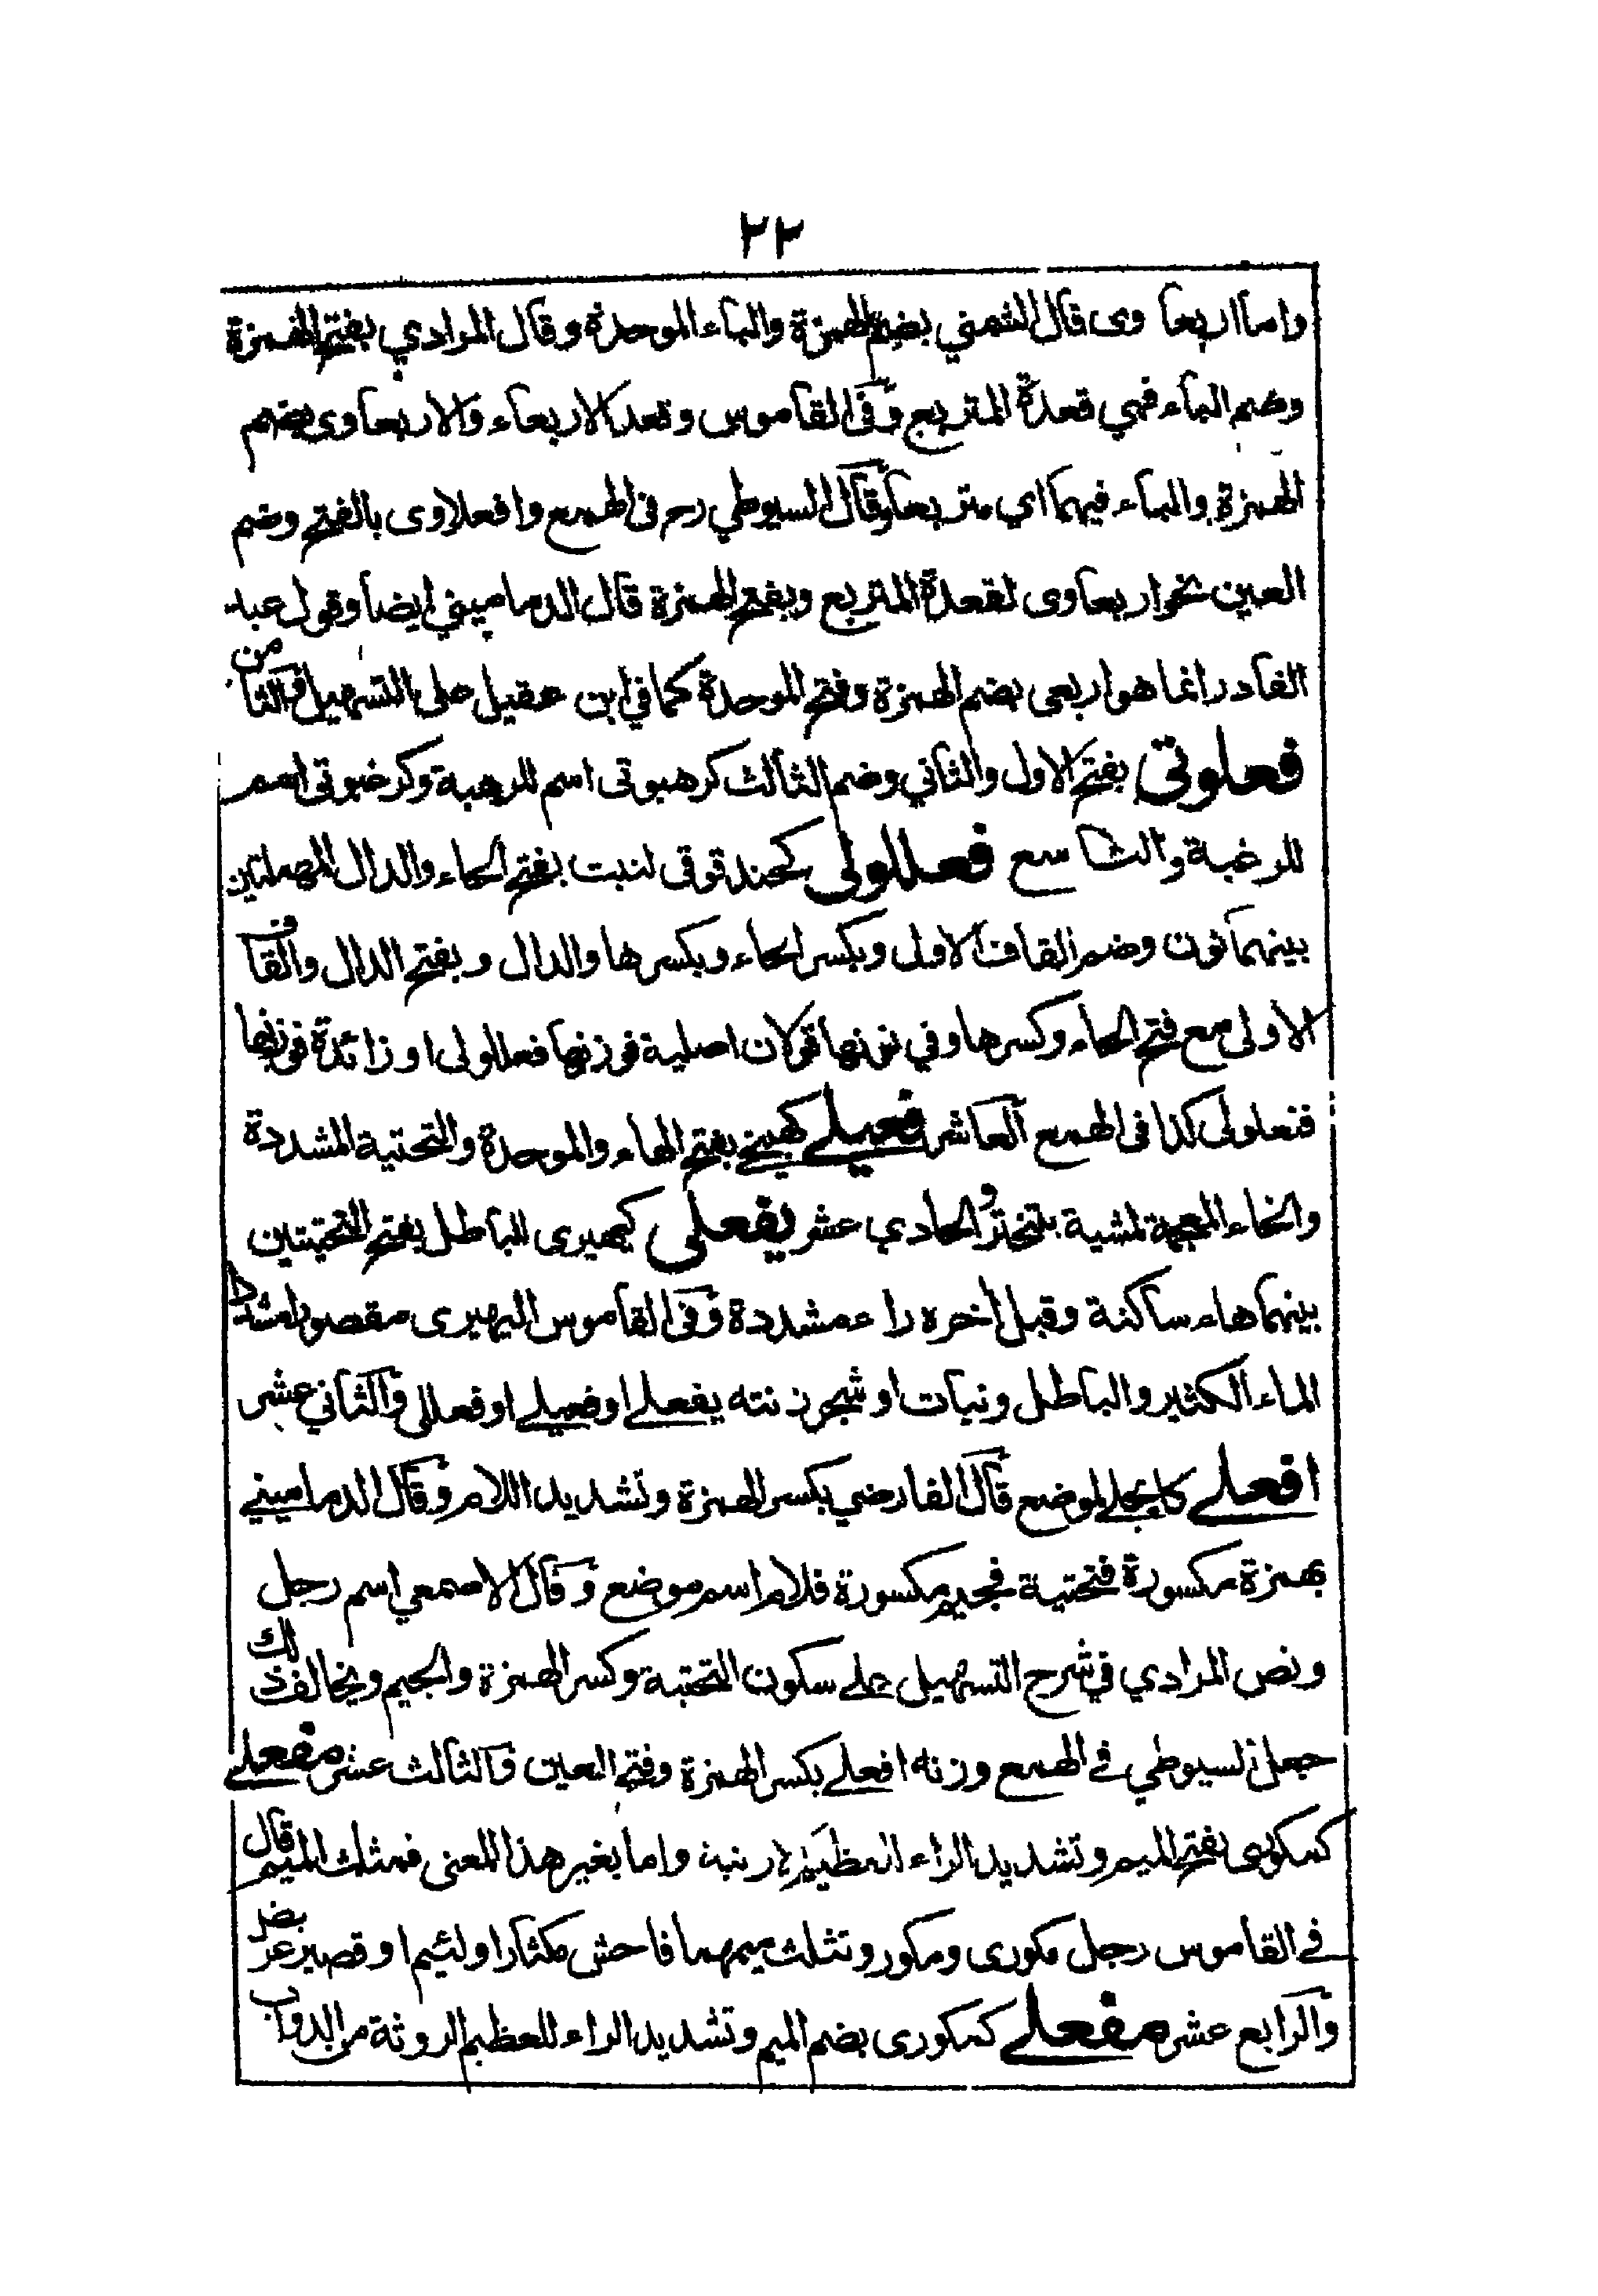 ٢٢
واما اربعا وى قال الشمني بضم الهمزة والباء الموحدة وقال المرادي بفتح الهمزة
وضم الباء فهي قعدة المتربع وفى القاموس وقعد الاربعاء والاربعاوى بضم
الهمزة والباء فيهما اي متربعا وقال السيوطي رح فى الهمع وافعلاوى بالفتح وضم
العين نحو اربعاوى لقعدة المتربع وبفتح الهمزة قال الدماميني ايضا وقول عبد
القادر انما هو اربعى بضم الهمزة وفتح الموحدة كما في ابن عقيل على التسهيل والثامن
فعلوتي بفتح الاول والثاني وضم الثالث كرهبوتى اسم للرهبة وكرغبوتى اسم
للرغبة والتاسع فعللولى كحندقوقى لنبت بفتح الحاء والدال المهملتين
بينهما نون وضم القاف الاولى وبكسر الحاء وبكسرها والدال وبفتح الدال والقاف
الاولى مع فتح الحاء وكسرها وفي نونها قولان اصلية فوزنها فعللولى او زائدة فوزنها
فنعلولى كذا فى الهمع العاشر فعيلے كهبيخے بفتح الهاء والموحدة والتحتية المشددة
والخاء المعجمة لمشية بتبختر والحادي عشر يفعلى كيهيرى للباطل بفتح التحتيتين
بينهما هاء ساكنة وقبل اخره راء مشددة وفى القاموس اليهيرى مقصورا مشددا
الماء الكثير والباطل ونبات او شجر زنته يفعلے او فعيلے او فعللى والثاني عشر
افعلے كايجلے لموضع قال الفارضي بكسر الهمزة وتشديد اللام وقال الدمامينے
بهمزة مكسورة فتحتية فجيم مكسورة فلام اسم موضع وقال الاصمعي اسم رجل
ونص المرادي في شرح التسهيل علے سكون التحتية وكسر الهمزة والجيم ويخالف ذلك
جعل السيوطي فے الهمع وزنه افعلے بكسر الهمزة وفتح العين والثالث عشر مفعلے
كمكورى بفتح الميم وتشديد الراء لعظيم الارنبة واما بغير هذا المعنى فمثلث الميم قال
فے القاموس رجل مكورى ومكور وتثلث ميمهما فاحش مكثار او لئيم او قصير عريض
والرابع عشر مفعلے كمكورى بضم الميم وتشديد الراء للعظيم الروثة من الدواب